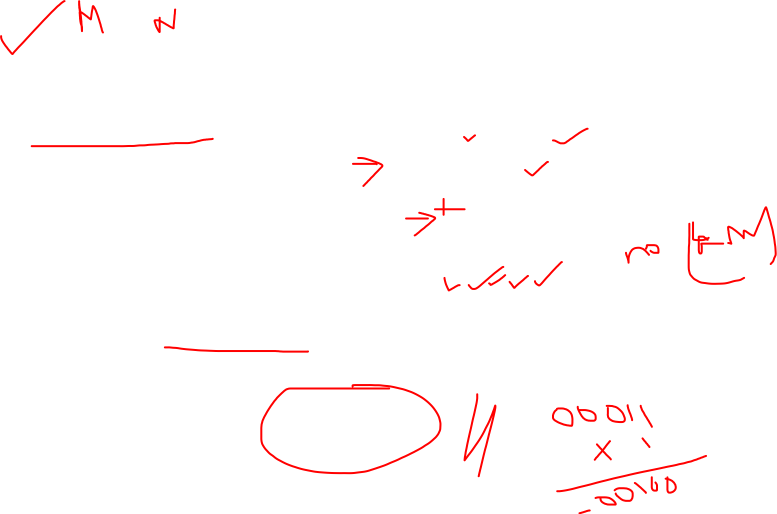 M N
no
N
00011
x 1
00100